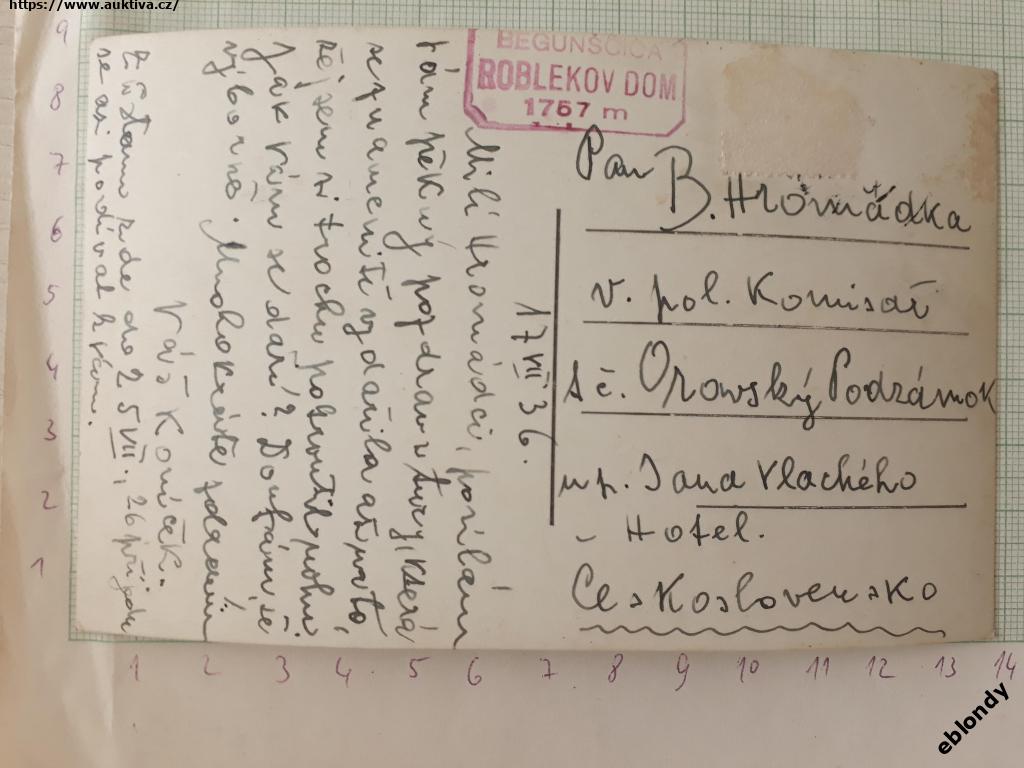 https://www.auktiva.cz/
BEGUNSCICA
ROBLEKOV DOM
1757 m
Pan
B. Hromádka
v. pol. Komisař
Orowský Podzámok
np. Jana Vlachého
Hotel.
Československo
17 VII 36.
Milí Hromádci, posílám
Vám pěkný pozdrav z tury, která
se znamenitě vydařila až na to,
že jsem si trochu pohnoutil nohu.
Jak Vám se daří? Doufám, že
výborně. Mnohokráte zdraví
Váš Koníček.
Zůstanu zde do 25 VII, 26 přijedu
se asi podívat k Vám.
9
8
7
6
5
4
3
2
1
1 2 3 4 5 6 7 8 9 10 11 12 13 14
eblondy